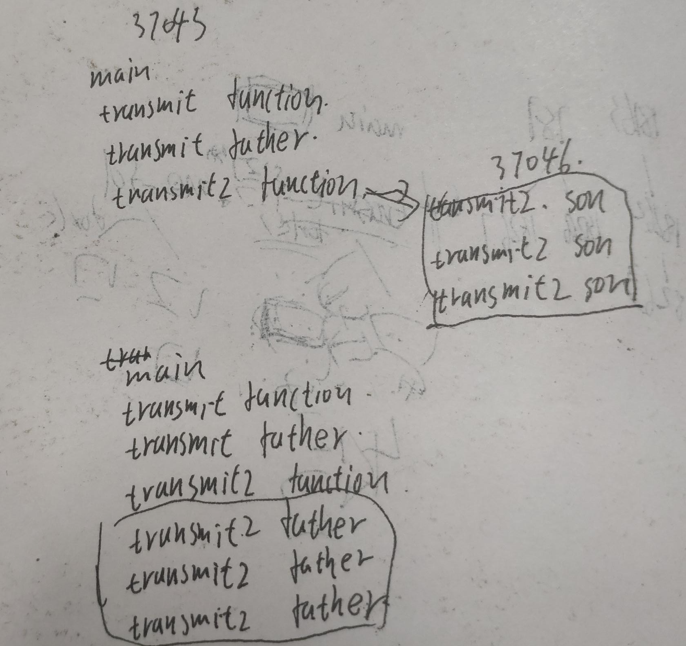 37043
main
transmit function.
transmit father.
transmit2 function
37046.
transmit2. son
transmit2 son
transmit2 son
main
transmit function.
transmit father.
transmit2 function.
transmit2 father
transmit2 father
transmit2 father